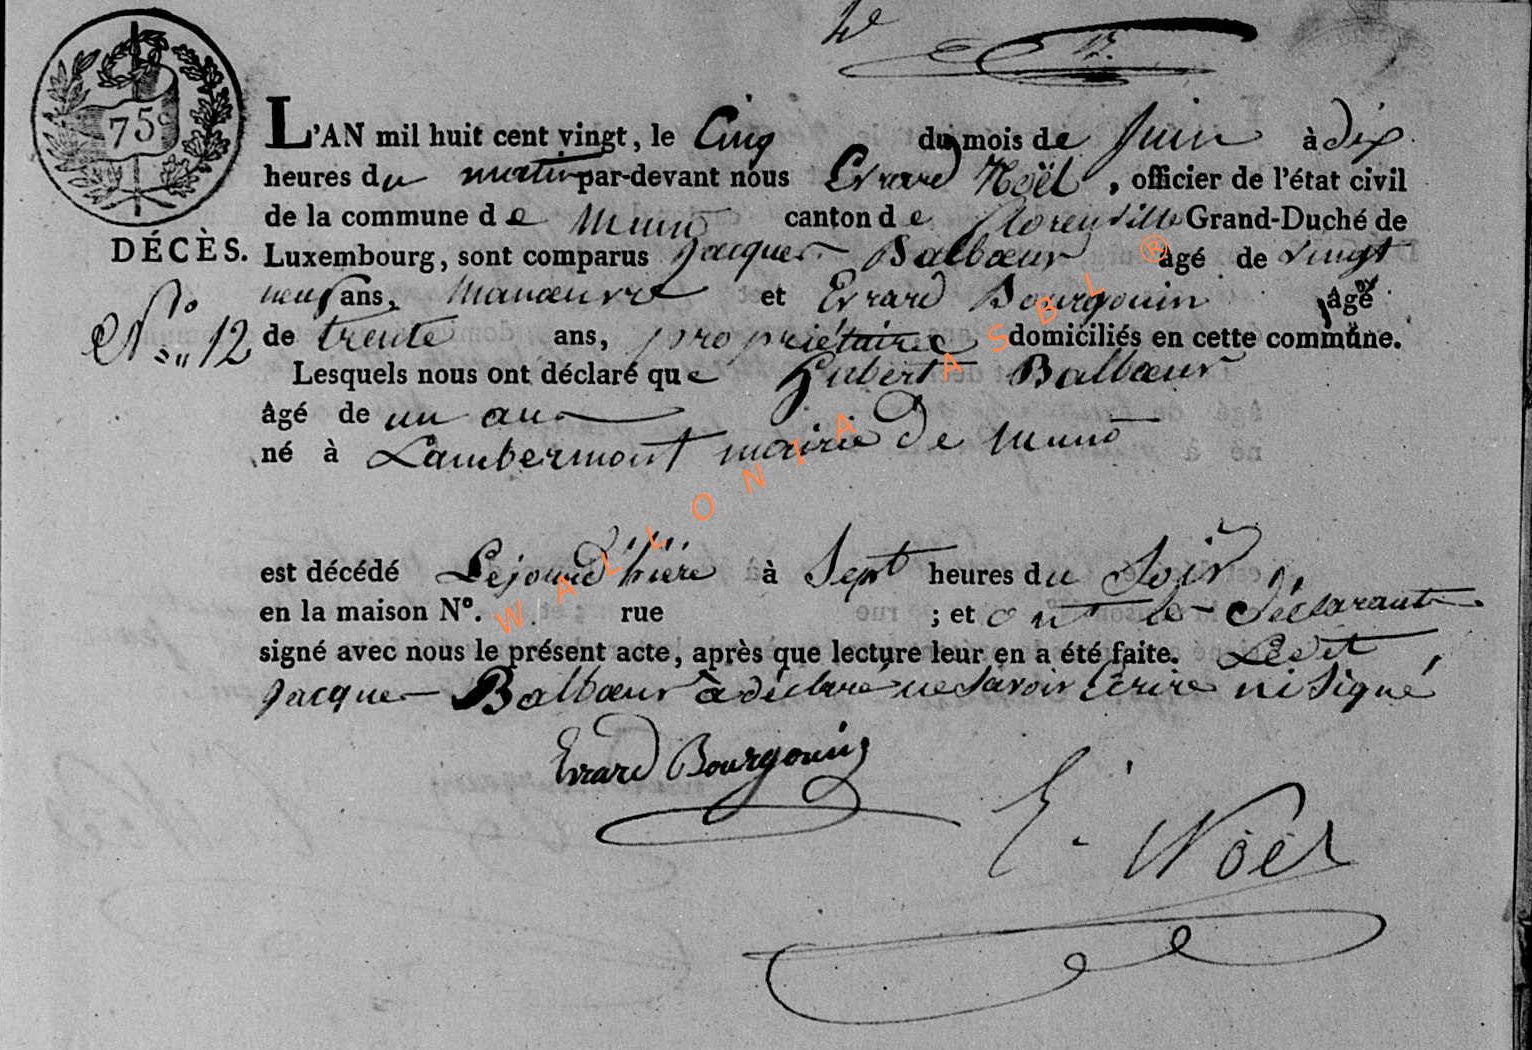 12.
75c
L'AN mil huit cent vingt, le Cinq du mois de Juin à dix
heures du matin par-devant nous Evrard Noël, officier de l'état civil
de la commune de Muno canton de florenville Grand-Duché de
DÉCÈS. Luxembourg, sont comparus Jacques Balbœur âgé de vingt
neuf ans, Manœuvre et Evrard Bourgouin âgé
N.º 12 de trente ans, propriétaires domiciliés en cette commune.
Lesquels nous ont déclaré que Hubert Balbœur
âgé de un an
né à Lambermont mairie de Muno
est décédé Lejourd'hière à Sept heures du Soir
en la maison Nº. rue ; et ont les déclarants
signé avec nous le présent acte, après que lecture leur en a été faite. Ledit
Jacques Balbœur à déclaré ne savoir Ecrire ni Signé
Evrard Bourgouin
E. Noël
WALLONIA ASBL ®